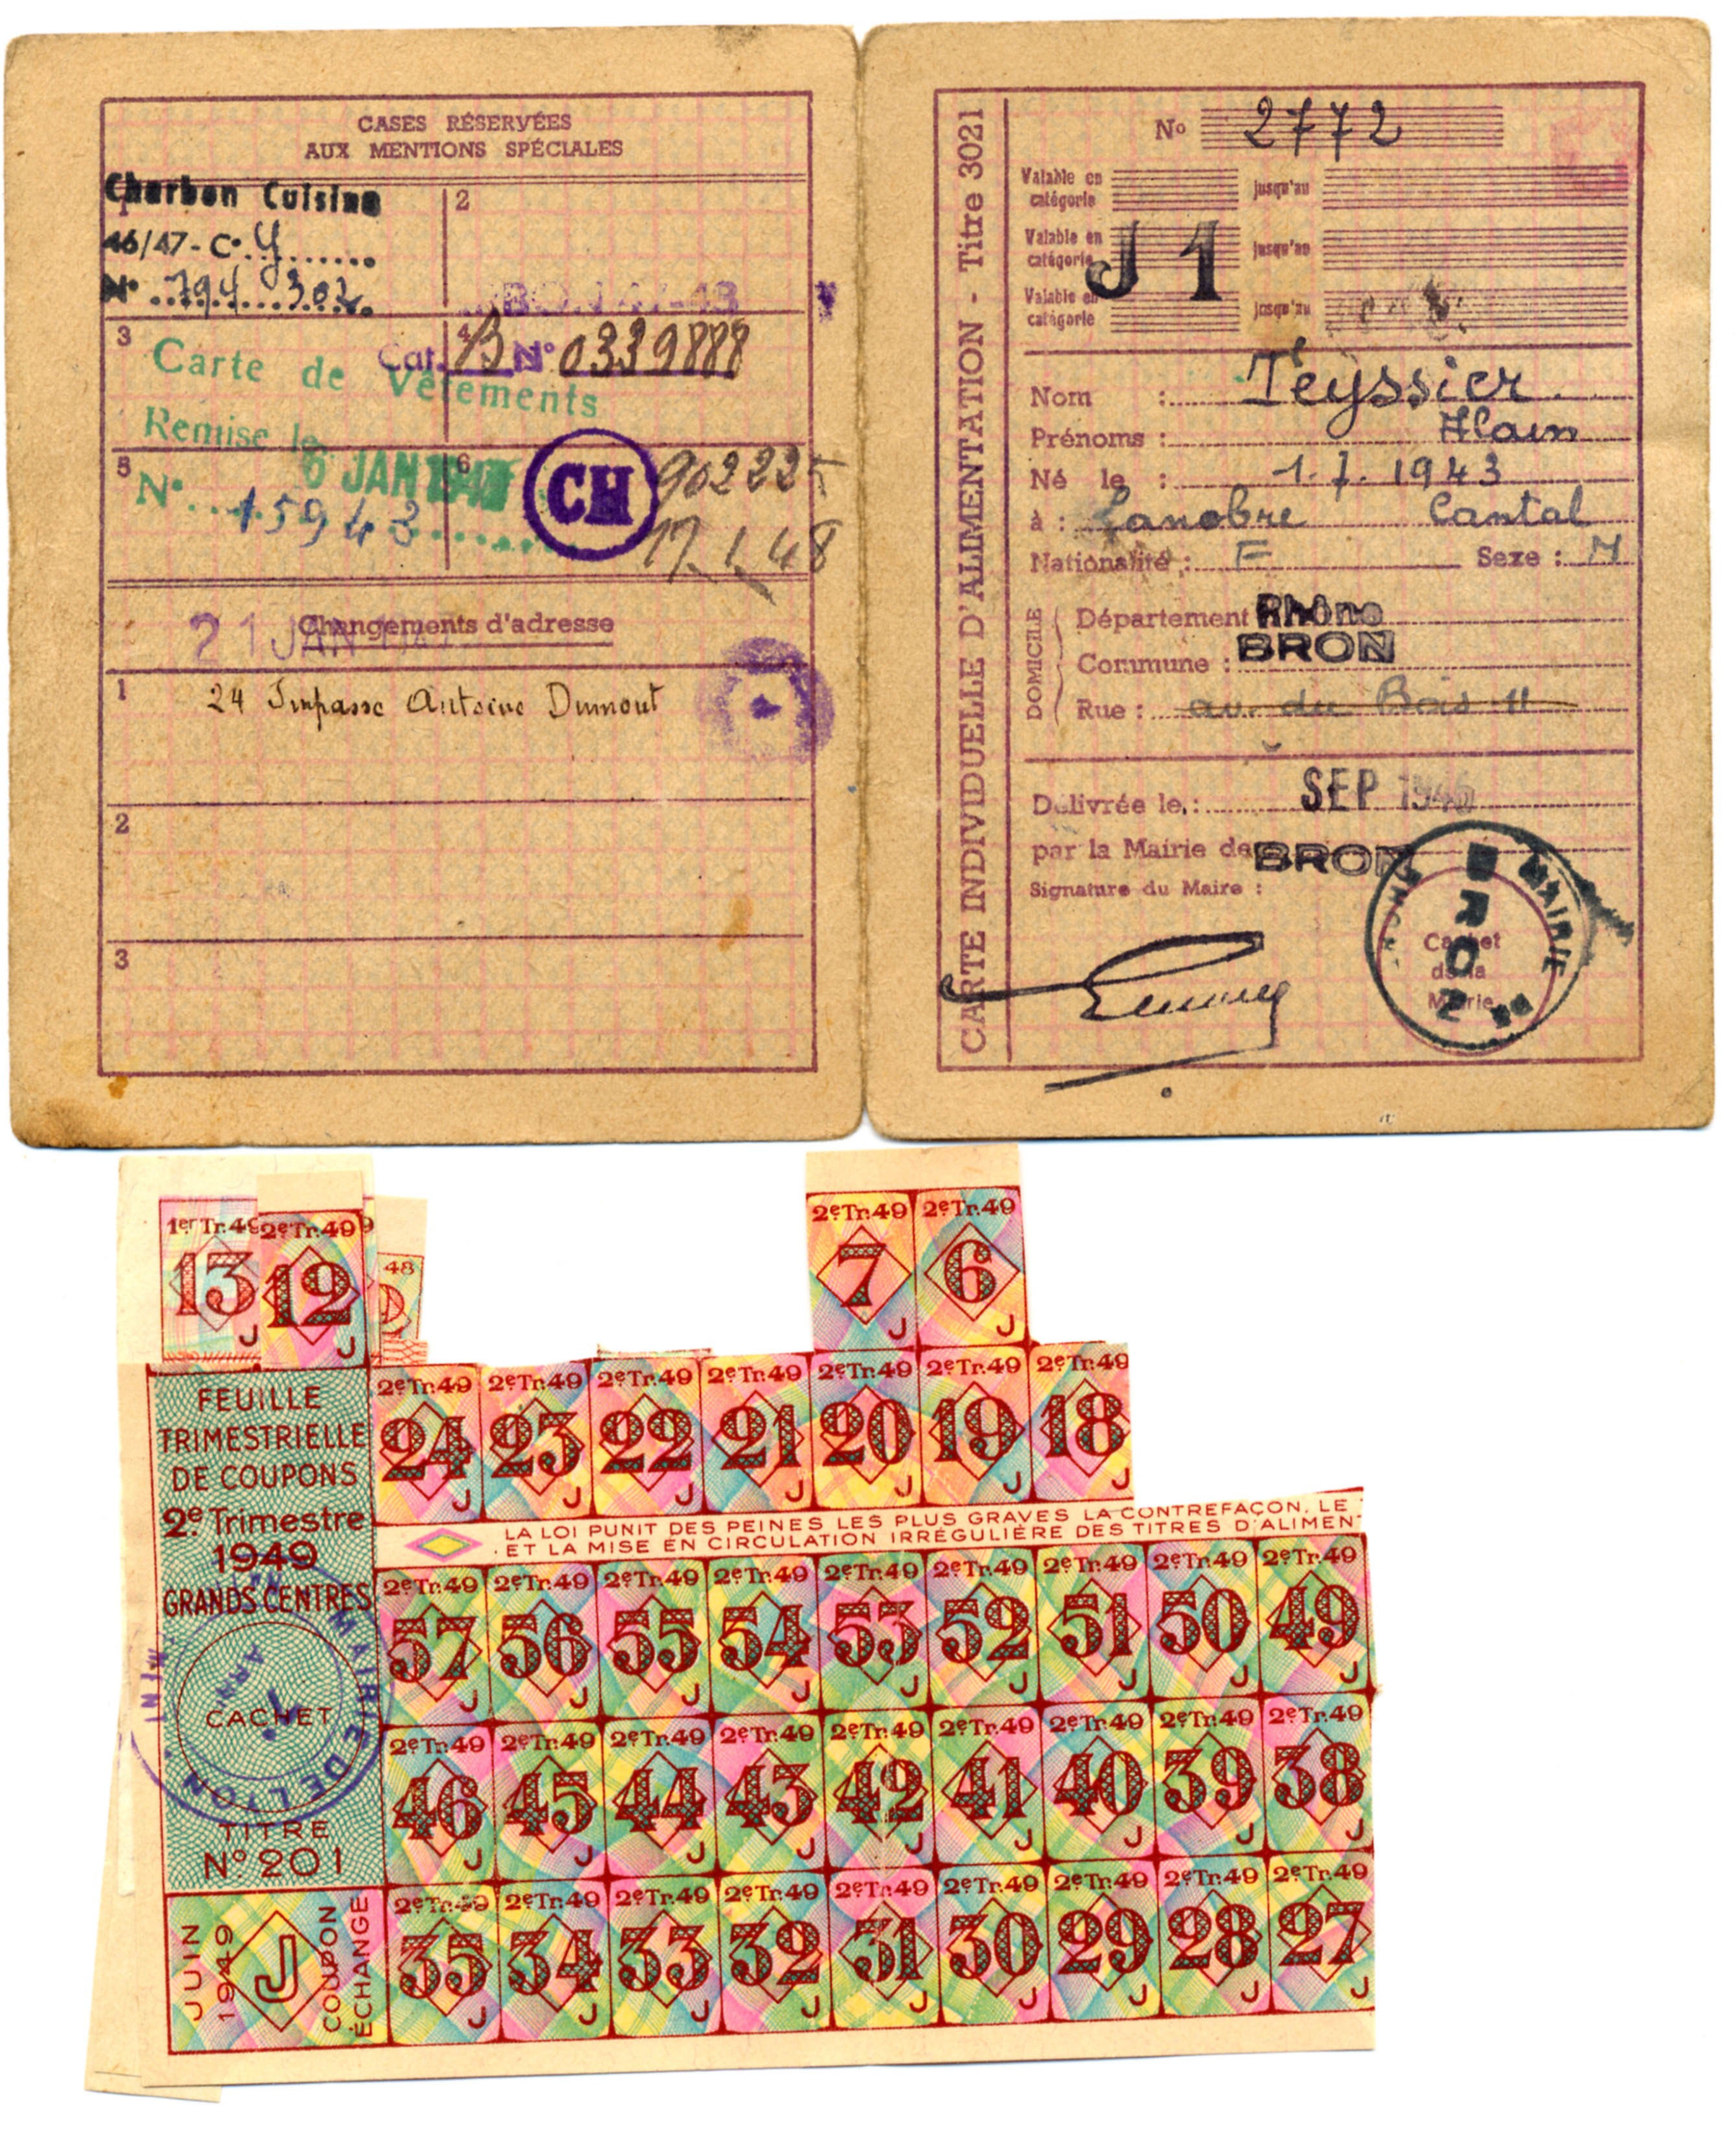 CASES RÉSERVÉES
AUX MENTIONS SPÉCIALES
1
Charbon Cuisine
46/47 - C. Y
No 794 302
2
BON 47-48
3
Carte de Vêtements
Remise le
6 JAN
4
Cat. B No 0339888
5
No 15943
6
CH
902225
17.1.48
Changements d'adresse
21 JAN
1
24 Impasse Antoine Dumont
2
3
CARTE INDIVIDUELLE D'ALIMENTATION - Titre 3021
No 2772
Valable en catégorie jusqu'au
Valable en catégorie J1 jusqu'au
Valable en catégorie jusqu'au
Nom : Teyssier
Prénoms : Alain
Né le : 1.7.1943
à : Lanobre Cantal
Nationalité : F Sexe : M
DOMICILE
Département Rhône
Commune : BRON
Rue : av. du Bois 11
Délivrée le : SEP 1946
par la Mairie de BRON
Signature du Maire :
Cachet
de la
Mairie
MAIRIE DE BRON
1er Tr. 49 13 J
2e Tr. 49 12 J
48
2e Tr. 49 7 J
2e Tr. 49 6 J
FEUILLE
TRIMESTRIELLE
DE COUPONS
2e Trimestre
1949
GRANDS CENTRES
CACHET
MAIRIE DE LYON
TITRE
No 201
2e Tr. 49 24 J
2e Tr. 49 23 J
2e Tr. 49 22 J
2e Tr. 49 21 J
2e Tr. 49 20 J
2e Tr. 49 19 J
2e Tr. 49 18 J
LA LOI PUNIT DES PEINES LES PLUS GRAVES LA CONTREFAÇON, LE
ET LA MISE EN CIRCULATION IRRÉGULIÈRE DES TITRES D'ALIMEN
2e Tr. 49 57 J
2e Tr. 49 56 J
2e Tr. 49 55 J
2e Tr. 49 54 J
2e Tr. 49 53 J
2e Tr. 49 52 J
2e Tr. 49 51 J
2e Tr. 49 50 J
2e Tr. 49 49 J
2e Tr. 49 46 J
2e Tr. 49 45 J
2e Tr. 49 44 J
2e Tr. 49 43 J
2e Tr. 49 42 J
2e Tr. 49 41 J
2e Tr. 49 40 J
2e Tr. 49 39 J
2e Tr. 49 38 J
JUIN
1949
J
COUPON
ÉCHANGE
2e Tr. 49 35 J
2e Tr. 49 34 J
2e Tr. 49 33 J
2e Tr. 49 32 J
2e Tr. 49 31 J
2e Tr. 49 30 J
2e Tr. 49 29 J
2e Tr. 49 28 J
2e Tr. 49 27 J